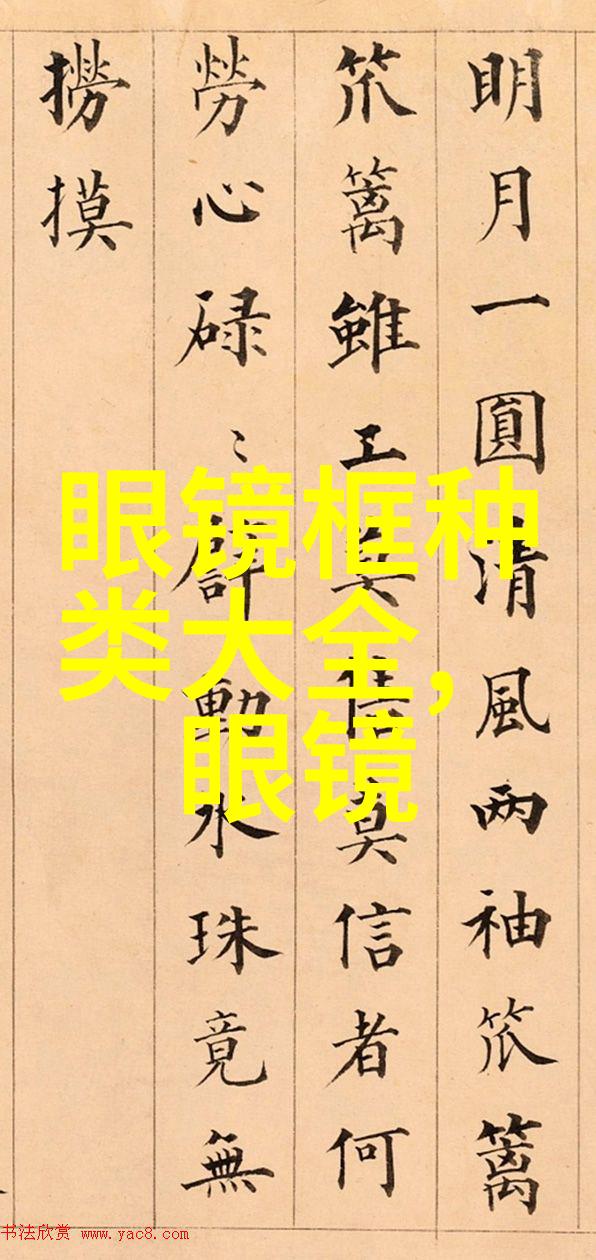 明月一圓清風两袖笊篱
笊篱雖莫信莫信者何
勞心碌〻譬動水珠竟無
撈摸
眼镜框种
类大全,
眼镜
书法欣赏 www.yac8.com